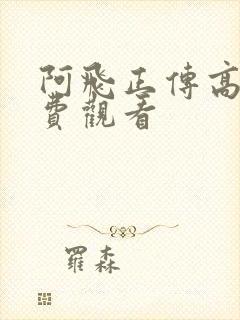 阿飛正傳高
費觀看
羅森